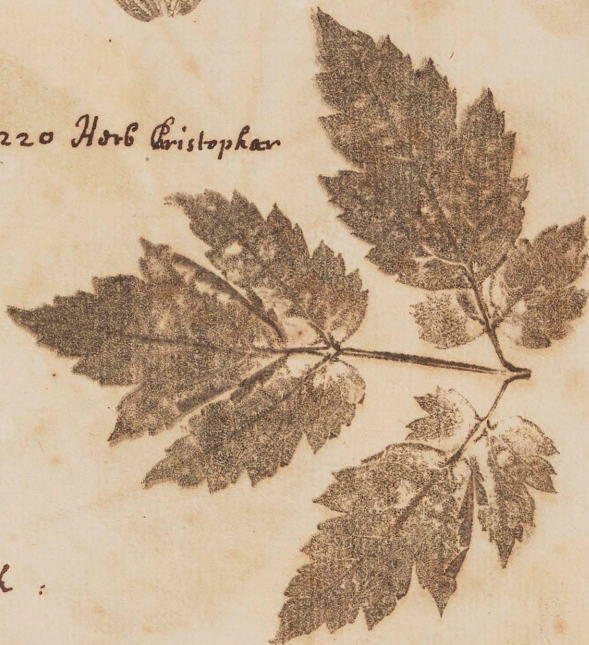 220 Herb Christophar